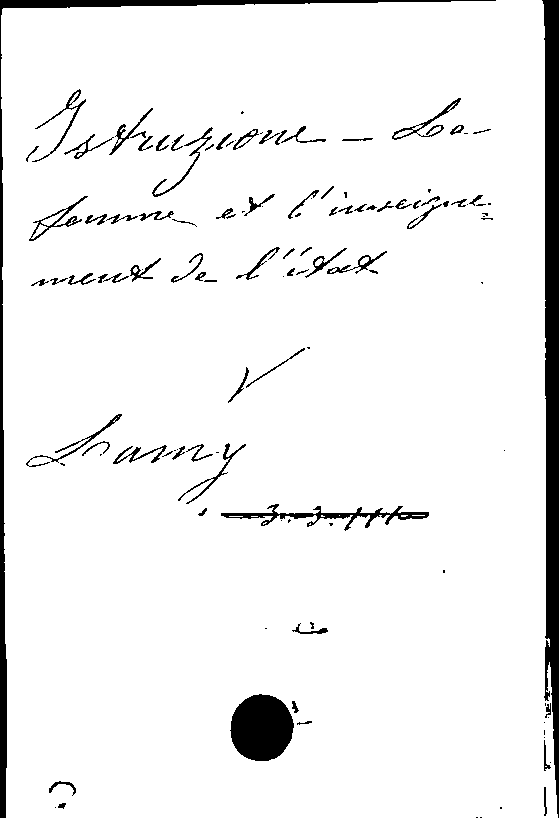 Istruzione - La
femme et l'inseigne=
ment de l'état
V
Lamy
3.3.